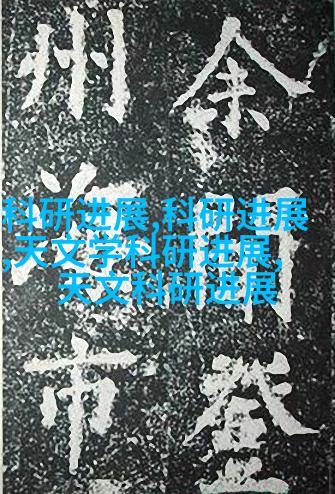 余登
州市
科研进展,科研进展
,天文学科研进展,
天文科研进展